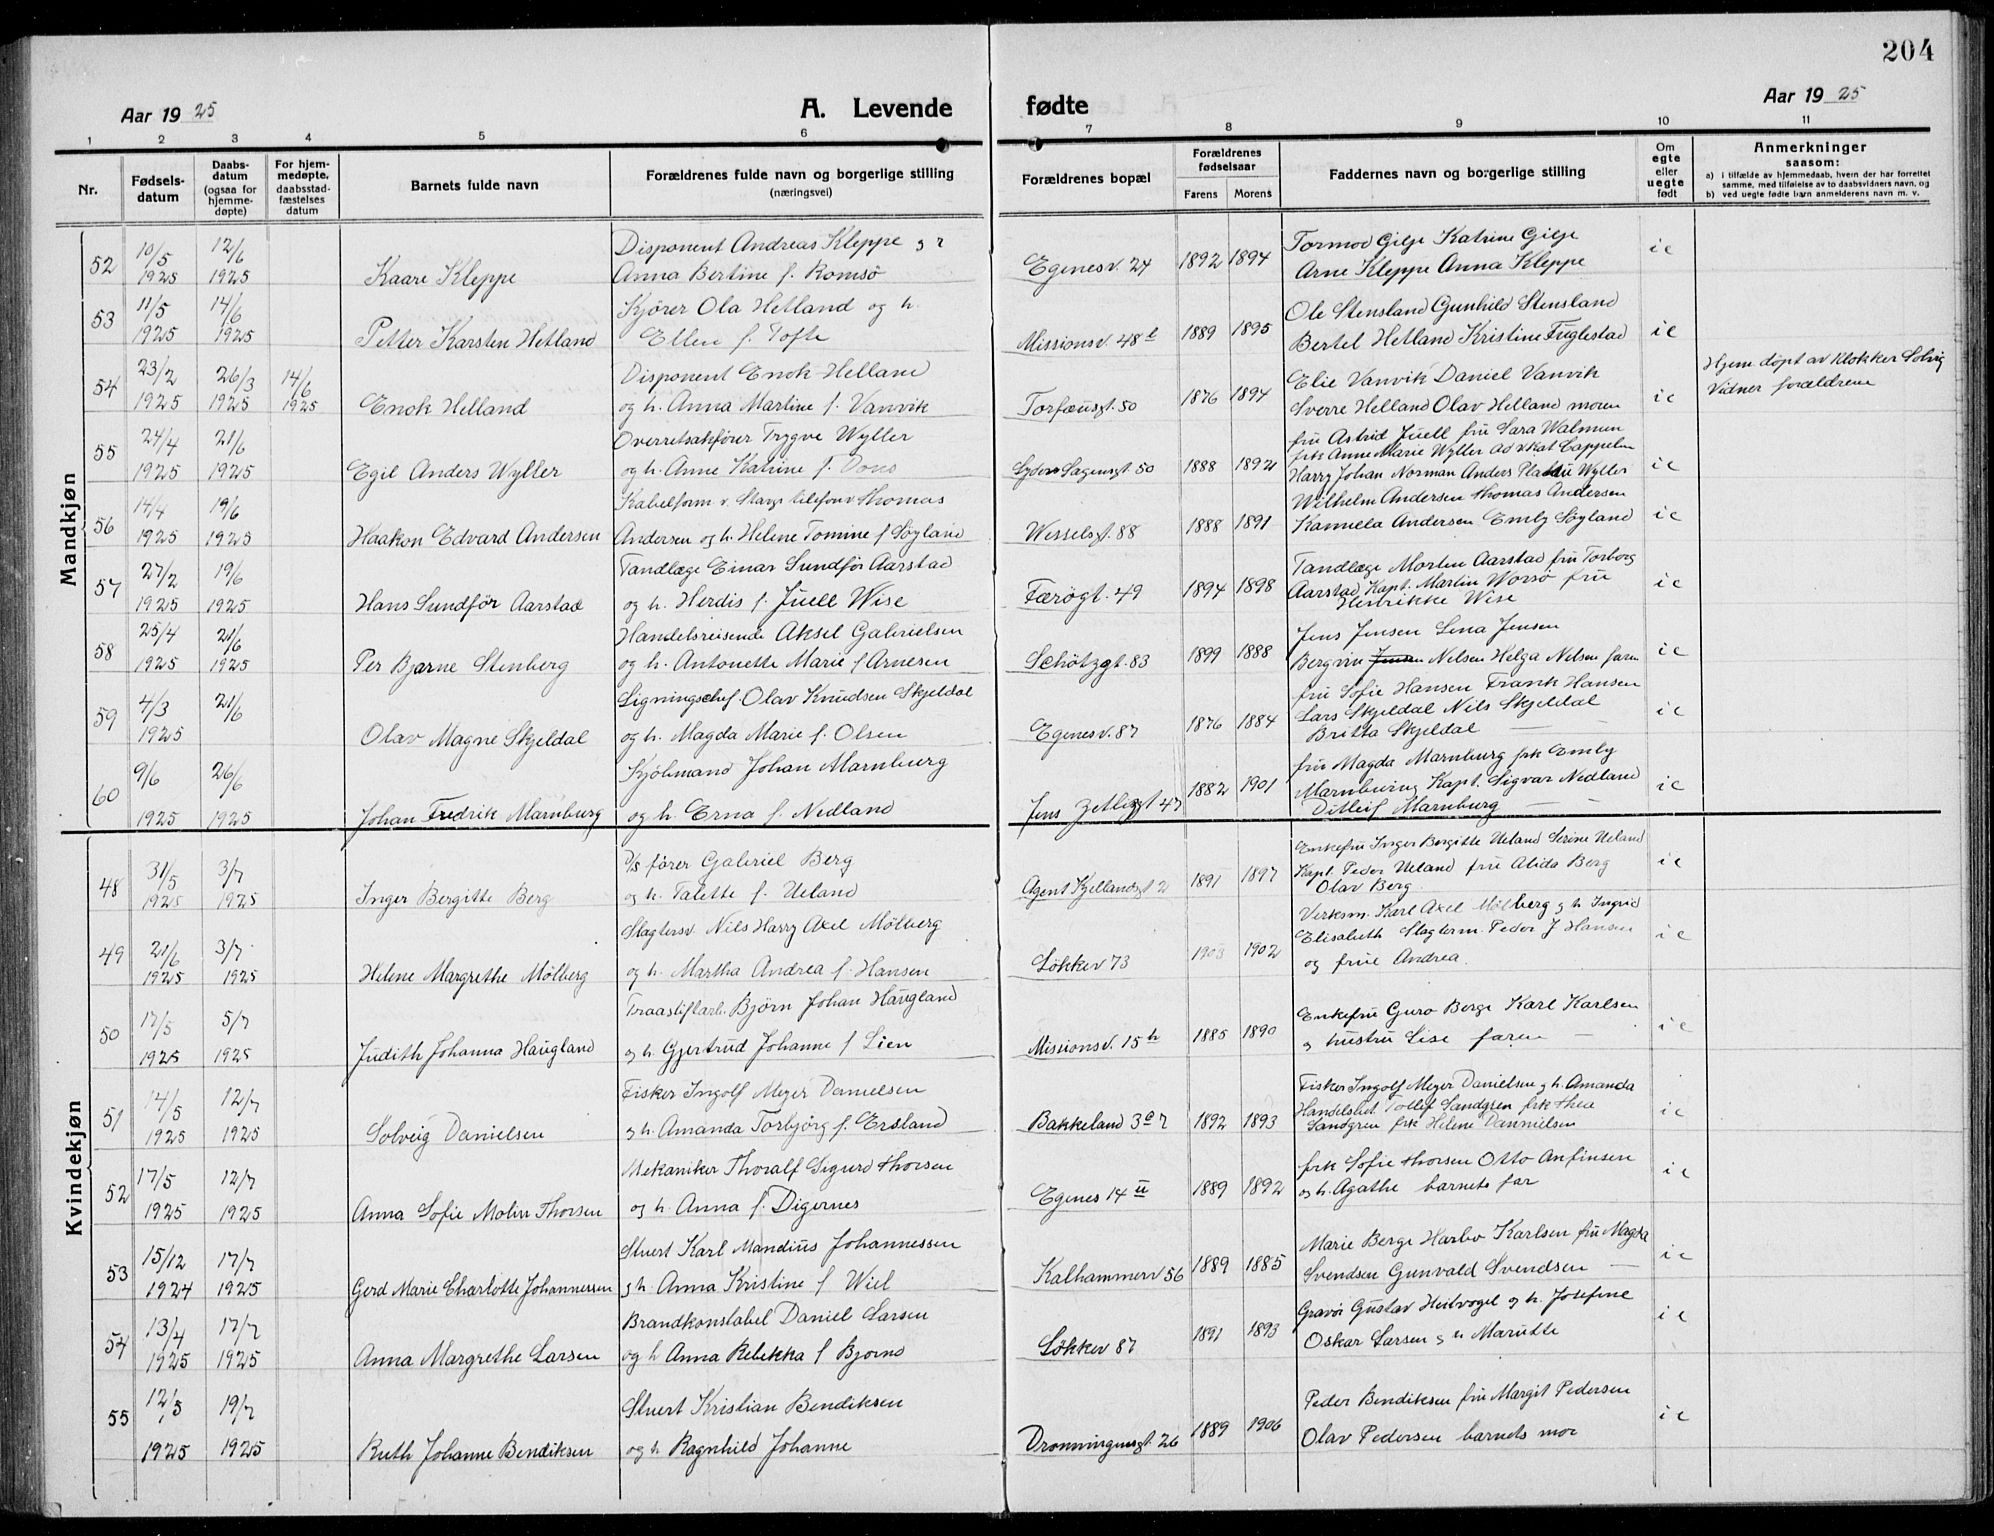 204
Aar 1925
A. Levende fødte
Aar 1925
1 2 3 4 5 6 7 8 9 10 11
Nr.
Fødsels-
datum
Daabs-
datum
(ogsaa for
hjemme-
døpte)
For hjem-
medøpte,
daabsstad-
fæstelses
datum
Barnets fulde navn
Forældrenes fulde navn og borgerlige stilling
(næringsvei)
Forældrenes bopæl
Forældrenes
fødselsaar
Farens Morens
Faddernes navn og borgerlige stilling
Om
egte
eller
uegte
født
Anmerkninger
saasom:
a) i tilfælde av hjemmedaab, hvem der har forrettet
samme, med tilføielse av to daabsvidners navn, og
b) ved uegte fødte barn anmelderens navn m. v.
Mandkjøn
52 10/5 12/6 Disponent Andreas Kleppe 1892 1894 Tormod Gilje Katrine Gilje i e
1925 1925 Kaare Kleppe Anna Bertine f. Romsö Egenesv. 24 Arne Kleppe Anna Kleppe
53 11/5 14/6 Kjörer Ola Hetland og h. 1889 1895 Ole Stensland Gunhild Stensland i e
1925 1925 Petter Karsten Hetland Ellen f. Tofte Missionsv. 48 Bertel Hetland Kristine Fuglestad
54 23/2 26/3 14/6 Disponent Enok Helland 1876 1894 Elie Vanvik Daniel Vanvik i e Hjemdöpt av Klokker
1925 1925 1925 Enok Helland og h. Anna Martine f. Vanvik Torfæusgt. 50 Sverre Helland Olav Helland moren Vidner forældrene
55 24/4 21/6 Overretssakförer Trygve Wyller 1888 1892 fru Astrid Juell fru Sara Walmun i e
frk Anne Marie Wyller advokat Cappelen
1925 1925 Egil Anders Wyller og h. Anne Katrine f. Dons Lyder Sagensgt 50 Harry Johan Norman Anders Wyller
56 14/4 19/6 Kabelform v. Stavgr telefonv Thomas 1888 1891 Wilhelm Andersen Thomas Andersen i e
1925 1925 Haakon Edvard Andersen Andersen og h. Helene Tomine f Söyland Wesselsgt. 88 Kamilla Andersen Emly Söyland
57 27/2 19/6 Tandlæge Einar Sundför Aarstad 1894 1898 Tandlæge Morten Aarstad fru Torborg i e
1925 1925 Hans Sundför Aarstad og h. Herdis f. Juell Wise Færögt. 49 Aarstad Kapt. Martin Worsö fru
Henrikke Wise
58 25/4 21/6 Handelsreisende Aksel Gabrielsen 1899 1888 Jens Jensen Lina Jensen i e
1925 1925 Per Bjarne Stenberg og h. Antonette Marie f Arnesen Schötzgt. 83 Bergvin Nelsen Helga Nelsen faren
59 4/3 21/6 Ligningschef. Olav Knudsen Skjeldal 1876 1884 fru Sofie Hansen Frank Hansen i e
1925 Olav Magne Skjeldal og h. Magda Marie f. Olsen Egenesv. 87 Lars Skjeldal Nils Skjeldal
Britta Skjeldal
60 9/6 26/6 Kjöbmand Johan Marnburg 1882 1901 fru Magda Marnburg frk Emly i e
1925 1925 Johan Fredrik Marnburg og h. Erna f. Nedland Jens Zetlizgt 47 Marnburg Kapt. Sigvar Nedland
Ditleif Marnburg
Kvindekjøn
48 31/5 3/7 D/s förer Gabriel Berg 1891 1897 Enkefru Inger Bergitte Ueland Serine Ueland i e
1925 1925 Inger Bergitte Berg og h. Talette f. Ueland Agent Kjellandsgt 2 Kapt. Peder Ueland fru Alida Berg
Olav Berg
49 21/6 3/7 Slagtersv. Nils Harry Axel Mölberg 1903 1902 Verksm. Karl Axel Mölberg og h Ingrid i e
1925 1925 Helene Margrethe Mölberg og h. Martha Andrea f. Hansen Lökkev 73 Elisabeth Slagterm. Peder J Hansen
og frue Andrea.
50 17/5 5/7 Traastiftarb. Björn Johan Haugland 1885 1890 Enkefru Guro Berge Karl Karlsen i e
1925 1925 Judith Johanna Haugland og h. Gjertrud Johanne f Lien Missionsv. 15 h og hustru Lise faren
51 14/5 12/7 Fisker Ingolf Meyer Danielsen 1892 1893 Fisker Ingolf Meyer Danielsen og h. Amanda i e
1925 1925 Solveig Danielsen og h. Amanda Torbjörg f. Ersland Bakkeland 3 Handelsbet Tollef Sandgren frk Thea
Sandgren frk Helene Dannielsen
52 17/5 12/7 Mekaniker Thoralf Sigurd Thorsen 1889 1892 frk Sofie Thorsen Otto Anfinsen i e
1925 1925 Anna Sofie Molin Thorsen og h. Anna f. Digernes Egenes 14 og h. Agathe barnets far
53 15/12 17/7 Stuert Karl Mandius Johannessen 1889 1885 Marie Berge Harbo Karlsen fru Magda i e
1924 1925 Gerd Marie Charlotte Johannessen og h. Anna Kristine f Wiel Kalhammerv 56 Svendsen Gunvald Svendsen
54 13/4 17/7 Brandkonstabel Daniel Larsen 1891 1893 Gravör Gustav Heitvogel og h. Josefine i e
1925 1925 Anna Margrethe Larsen og h Anna Rebekka f Bjornö Lökkev 87 Oskar Larsen
55 12/5 19/7 Stuert Kristian Bendiksen 1889 1906 Peder Bendiksen fru Margit Pedersen i e
1925 1925 Ruth Johanne Bendiksen og h Ragnhild Johanne Dronningensgt. 26 Olav Pedersen barnets mor